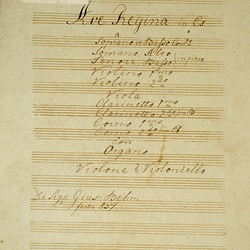 Ave Regina in Es
a
Soprano è Basso Conc.
Soprano Alto
Tenore Basso
Violino 1mo
Violino 2do
Viola
Clarinetto 1mo
Clarinetto 2do in B
Corno 1mo
Corno 2do in Es
con
Organo
Violone è Violoncello
Del Sigr Gius: Böhm